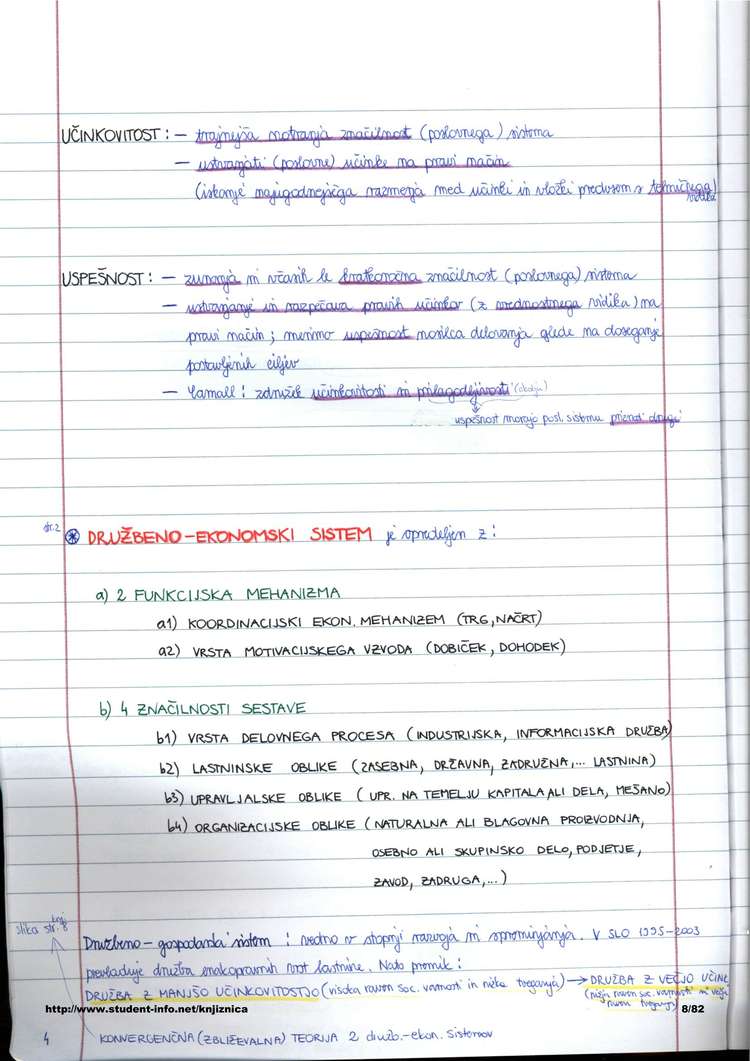 UČINKOVITOST : – trajnejša notranja značilnost (poslovnega) sistema
– ustvarjati (poslovne) učinke na pravi način
(iskanje najugodnejšega razmerja med učinki in vložki predvsem s tehničnega
vidika)
USPEŠNOST : – zunanja in včasih le kratkoročna značilnost (poslovnega) sistema
– ustvarjanje in razpečava pravih učinkov (z vrednostnega vidika) na
pravi način ; merimo uspešnost nosilca delovanja glede na doseganje
postavljenih ciljev
– : združek učinkovitosti in prilagodljivosti (okolju)
uspešnost morajo posl. sistemu priznati drugi
str.2
DRUŽBENO – EKONOMSKI SISTEM je opredeljen z :
a) 2 FUNKCIJSKA MEHANIZMA
a1) KOORDINACIJSKI EKON. MEHANIZEM (TRG, NAČRT)
a2) VRSTA MOTIVACIJSKEGA VZVODA (DOBIČEK, DOHODEK)
b) 4 ZNAČILNOSTI SESTAVE
b1) VRSTA DELOVNEGA PROCESA (INDUSTRIJSKA, INFORMACIJSKA DRUŽBA)
b2) LASTNINSKE OBLIKE (ZASEBNA, DRŽAVNA, ZADRUŽNA,... LASTNINA)
b3) UPRAVLJALSKE OBLIKE (UPR. NA TEMELJU KAPITALA ALI DELA, MEŠANO)
b4) ORGANIZACIJSKE OBLIKE (NATURALNA ALI BLAGOVNA PROIZVODNJA,
OSEBNO ALI SKUPINSKO DELO, PODJETJE,
ZAVOD, ZADRUGA,...)
slika str. 8
knj.
Družbeno – gospodarski sistem : vedno v stopnji razvoja in spreminjanja. V SLO 1995-2003
prevladuje družba enakopravnih vrst lastnine. Nato premik :
DRUŽBA Z MANJŠO UČINKOVITOSTJO (visoka raven soc. varnosti in nizka tveganja) → DRUŽBA Z VEČJO UČINK
(nižja raven soc. varnosti in večja
raven tveganja)
http://www.student-info.net/knjiznica
8/82
4
KONVERGENČNA (ZBLIŽEVALNA) TEORIJA 2 družb.-ekon. sistemov